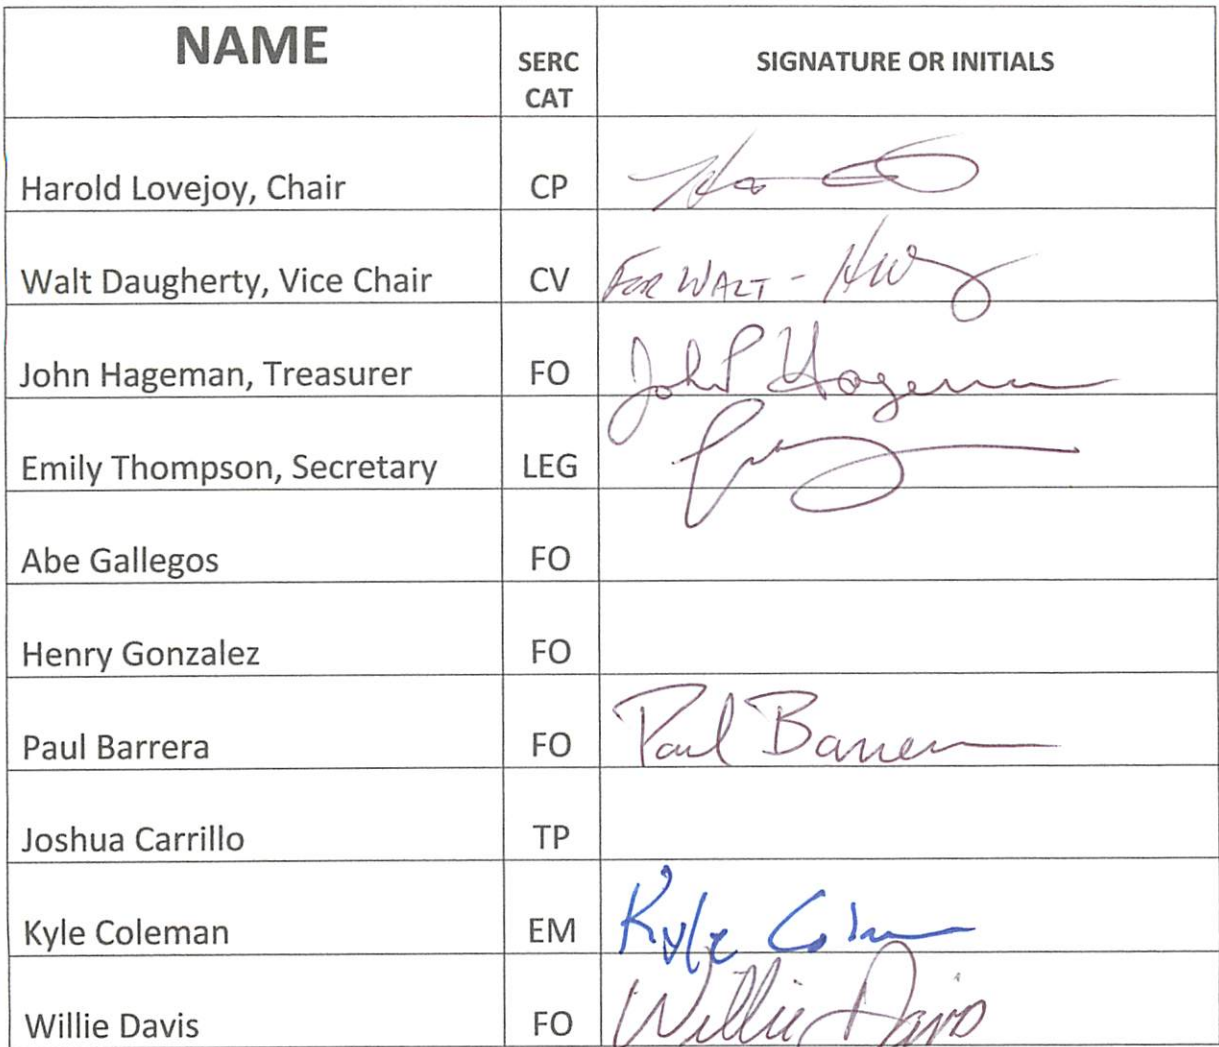 NAME SERC CAT SIGNATURE OR INITIALS
Harold Lovejoy, Chair CP
Walt Daugherty, Vice Chair CV FOR WALT -
John Hageman, Treasurer FO John P Hageman
Emily Thompson, Secretary LEG
Abe Gallegos FO
Henry Gonzalez FO
Paul Barrera FO Paul Barrera
Joshua Carrillo TP
Kyle Coleman EM Kyle Coleman
Willie Davis FO Willie Davis